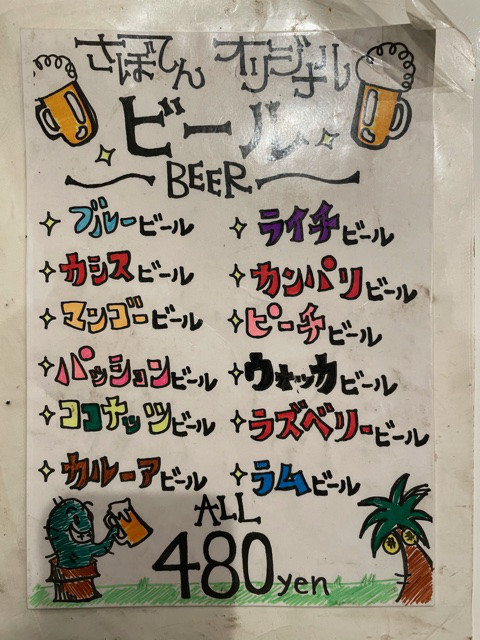 さぼてん オリジナル
ビール
BEER
ブルービール
カシスビール
マンゴービール
パッションビール
ココナッツビール
カルーアビール
ライチビール
カンパリビール
ピーチビール
ウォッカビール
ラズベリービール
ラムビール
ALL
480yen